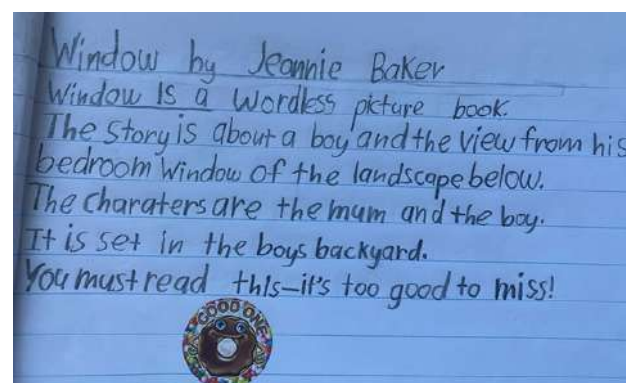 Window by Jeannie Baker
Window Is a Wordless picture book.
The story is about a boy and the view from his
bedroom window of the landscape below.
The charaters are the mum and the boy.
It is set in the boys backyard.
You must read this—it's too good to miss!
GOOD ONE